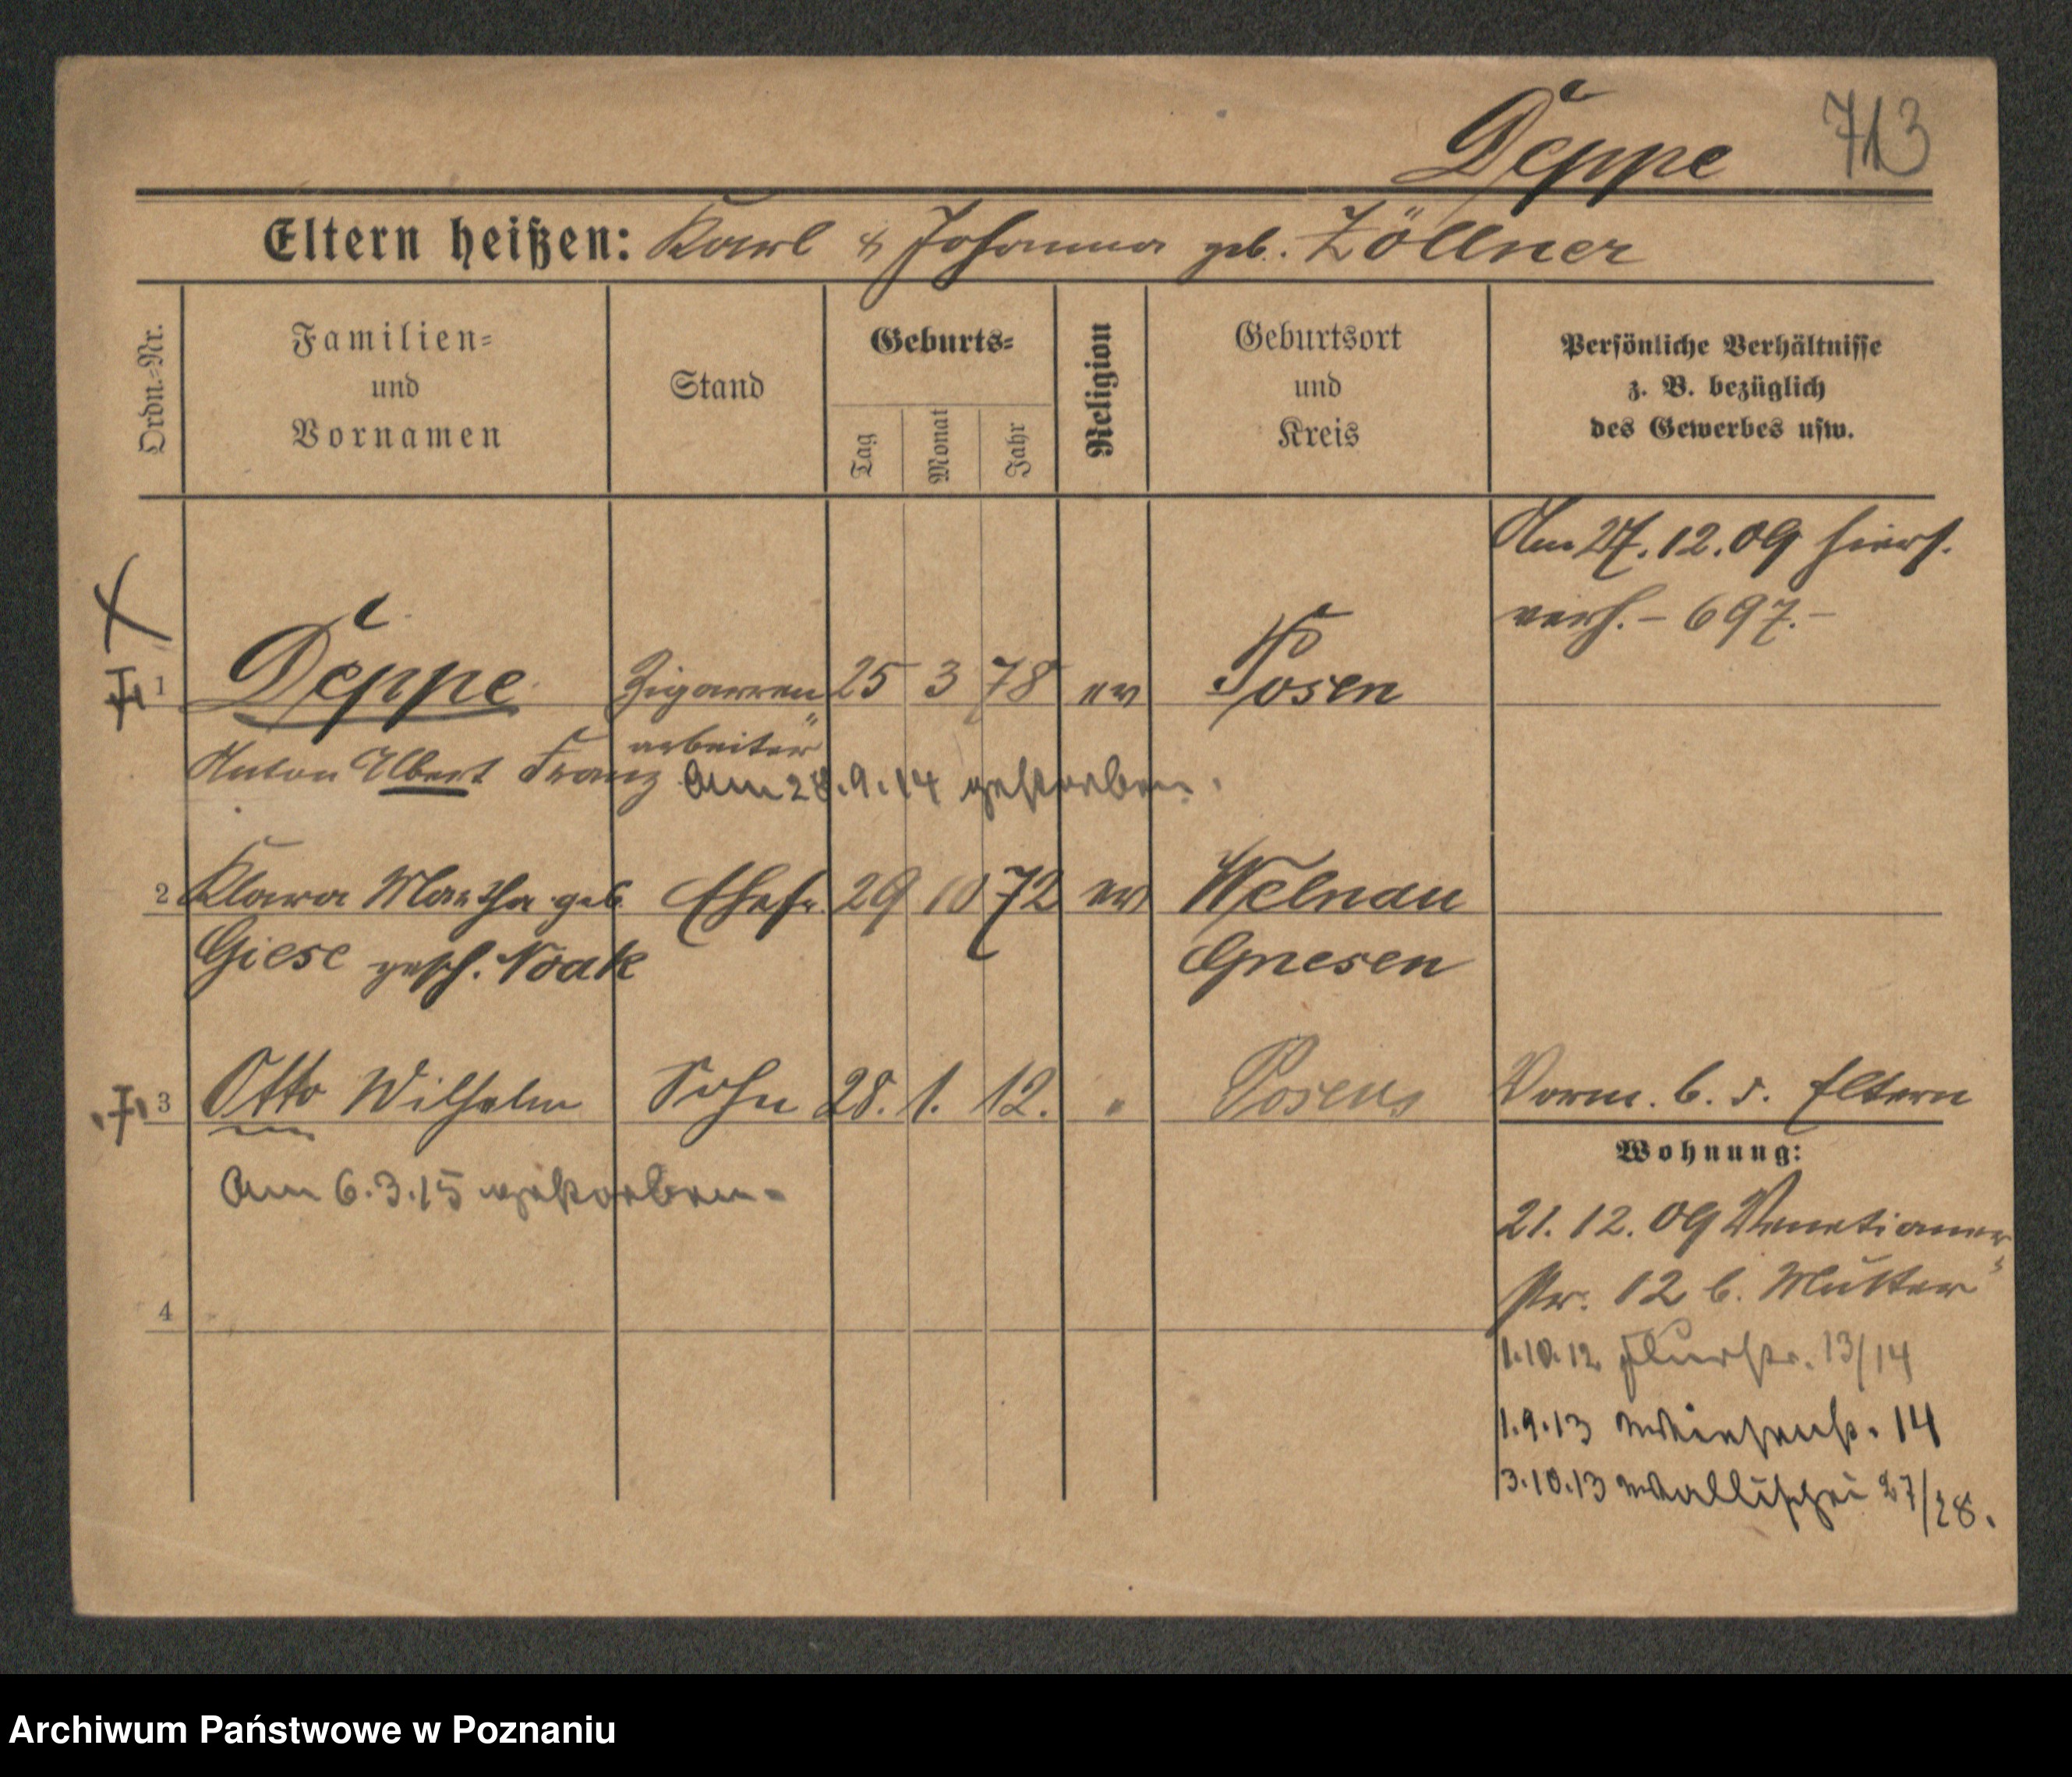 Deppe 713
Eltern heißen: Karl & Johanna geb. Zöllner
Ordn.-Nr.
Familien-
und
Vornamen
Stand
Geburts-
Tag
Monat
Jahr
Religion
Geburtsort
und
Kreis
Persönliche Verhältnisse
z. B. bezüglich
des Gewerbes usw.
Am 27.12.09 hiers.
verh. - 697. -
1 Deppe Zigarren 25 3 78 ev Posen
arbeiter
Anton Albert Franz Am 28.9.14 gestorben.
2 Klara Martha geb. Ehefr. 29 10 72 ev Welnau
Giese gesch. Noak Gnesen
3 Otto Wilhelm Sohn 28. 1. 12. " Posen Vorm. b. d. Eltern
Am 6.3.15 gestorben.
Wohnung:
21.12.09 Venetianer
str. 12 b. Mutter
4
1.10.12 Flurstr. 13/14
1.9.13 14
3.10.13 Wallischei 27/28.
Archiwum Państwowe w Poznaniu